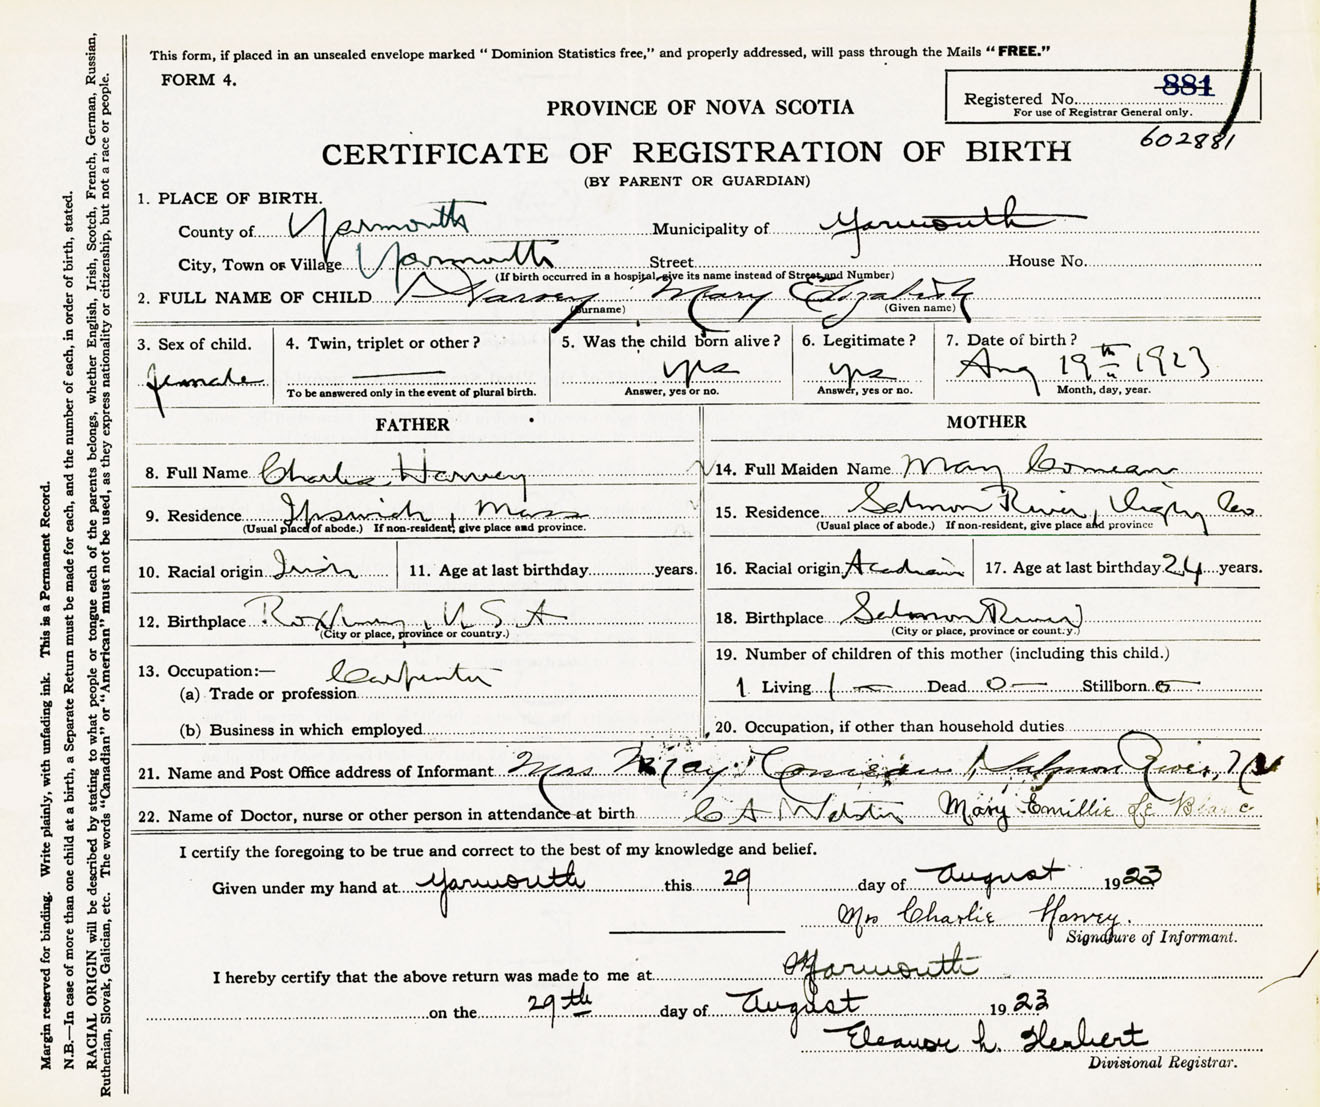 This form, if placed in an unsealed envelope marked " Dominion Statistics free," and properly addressed, will pass through the Mails "FREE."
FORM 4.
881
Registered No.
For use of Registrar General only.
602881
PROVINCE OF NOVA SCOTIA
CERTIFICATE OF REGISTRATION OF BIRTH
(BY PARENT OR GUARDIAN)
1. PLACE OF BIRTH.
County of Yarmouth Municipality of Yarmouth
City, Town or Village Yarmouth Street House No.
(If birth occurred in a hospital, give its name instead of Street and Number)
2. FULL NAME OF CHILD Harvey Mary Elizabeth
(Surname) (Given name)
3. Sex of child. 4. Twin, triplet or other? 5. Was the child born alive? 6. Legitimate? 7. Date of birth?
female yes yes Aug 19th 1923
To be answered only in the event of plural birth. Answer, yes or no. Answer, yes or no. Month, day, year.
FATHER MOTHER
8. Full Name Charlie Harvey 14. Full Maiden Name Mary Comeau
9. Residence Ipswich, Mass 15. Residence Salmon River, Digby Co
(Usual place of abode.) If non-resident, give place and province. (Usual place of abode.) If non-resident, give place and province
10. Racial origin Irish 11. Age at last birthday years. 16. Racial origin Acadian 17. Age at last birthday 24 years.
12. Birthplace Roxbury, U S A 18. Birthplace Salmon River
(City or place, province or country.) (City or place, province or country.)
13. Occupation:— 19. Number of children of this mother (including this child.)
(a) Trade or profession Carpenter 1 Living 1 — Dead 0 — Stillborn 0 —
(b) Business in which employed 20. Occupation, if other than household duties
21. Name and Post Office address of Informant Mrs Mary Comeau, Salmon River,
22. Name of Doctor, nurse or other person in attendance at birth C A Webster Mary Emillie Le Blanc
I certify the foregoing to be true and correct to the best of my knowledge and belief.
Given under my hand at Yarmouth this 29 day of August 1923
Mrs Charlie Harvey.
Signature of Informant.
I hereby certify that the above return was made to me at Yarmouth
on the 29th day of August 1923
Eleanor L. Herbert
Divisional Registrar.
Margin reserved for binding. Write plainly, with unfading ink. This is a Permanent Record.
N.B.—In case of more than one child at a birth, a Separate Return must be made for each, and the number of each, in order of birth, stated.
RACIAL ORIGIN will be described by stating to what people or tongue each of the parents belongs, whether English, Irish, Scotch, French, German, Russian,
Ruthenian, Slovak, Galician, etc. The words "Canadian" or "American" must not be used, as they express nationality or citizenship, but not a race or people.